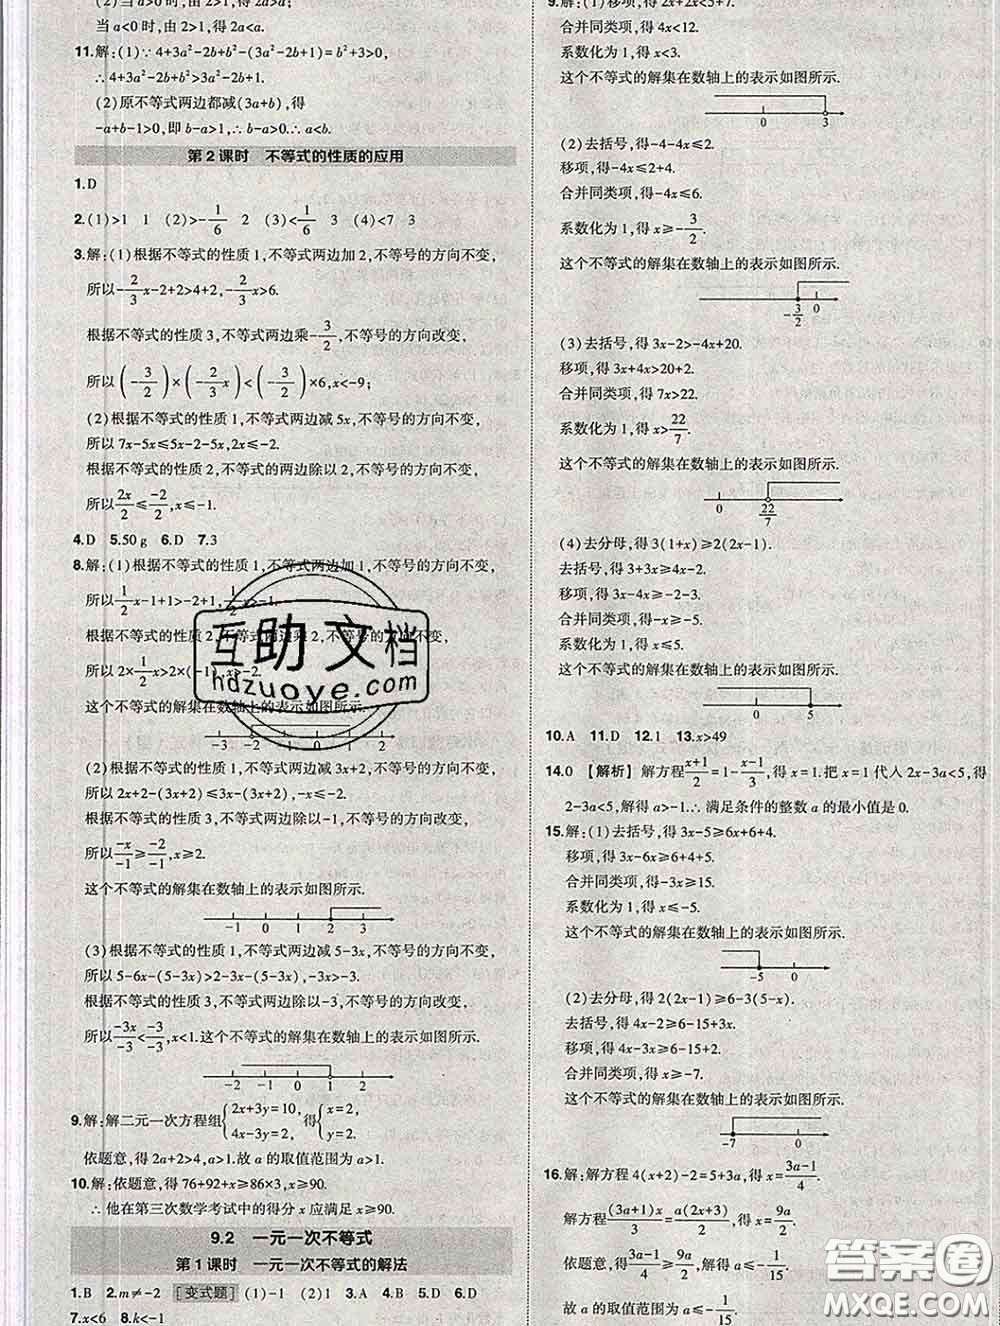 (2)当a>0时,由2>1,得2a>a;
当a<0时,由2>1,得2a<a.
11.解:(1)∵4+3a²-2b+b²-(3a²-2b+1)=b²+3>0,
∴4+3a²-2b+b²>3a²-2b+1.
(2)原不等式两边都减(3a+b),得
-a+b-1>0,即b-a>1,∴b-a>0.∴a<b.
第2课时 不等式的性质的应用
1.D
2.(1)>1 1 (2)>-1/6 2 (3)<1/6 3 (4)<7 3
3.解:(1)根据不等式的性质1,不等式两边加2,不等号的方向不变,
所以-2/3x-2+2>4+2,-2/3x>6.
根据不等式的性质3,不等式两边乘-3/2,不等号的方向改变,
所以(-3/2)×(-2/3x)<(-3/2)×6,x<-9;
(2)根据不等式的性质1,不等式两边减5x,不等号的方向不变,
所以7x-5x≤5x-2-5x,2x≤-2.
根据不等式的性质2,不等式的两边除以2,不等号的方向不变,
所以2x/2≤-2/2,x≤-1.
4.D 5.50 g 6.D 7.3
8.解:(1)根据不等式的性质1,不等式两边加1,不等号的方向不变,
所以1/2x-1+1>-2+1,1/2x>-1.
根据不等式的性质2,不等式两边乘2,不等号的方向不变,
所以2×1/2x>2×(-1),x>-2.
这个不等式的解集在数轴上的表示如图所示.
-3 -2 -1 0 1 2
(2)根据不等式的性质1,不等式两边减3x+2,不等号的方向不变,
所以2x+2-(3x+2)≤3x-(3x+2),-x≤-2.
根据不等式的性质3,不等式两边除以-1,不等号的方向改变,
所以-x/-1≥-2/-1,x≥2.
这个不等式的解集在数轴上的表示如图所示.
-1 0 1 2 3
(3)根据不等式的性质1,不等式两边减5-3x,不等号的方向不变,
所以5-6x-(5-3x)>2-3x-(5-3x),-3x>-3.
根据不等式的性质3,不等式两边除以-3,不等号的方向改变,
所以-3x/-3<-3/-3,x<1.这个不等式的解集在数轴上的表示如图所示.
-2 -1 0 1 2
9.解:解二元一次方程组{2x+3y=10,4x-3y=2,得{x=2,y=2.
依题意,得2a+2>4,故a的取值范围为a>1.
10.解:依题意,得76+92+x≥86×3,x≥90.
∴他在第三次数学考试中的得分x应满足x≥90.
9.2 一元一次不等式
第1课时 一元一次不等式的解法
1.B 2.m≠-2 [变式题](1)-1 (2)1 3.A 4.A 5.D 6.D
7.x<6 8.k<-1
9.解:(1)移项,得2x+2x<5+7.
合并同类项,得4x<12.
系数化为1,得x<3.
这个不等式的解集在数轴上的表示如图所示.
0 3
(2)去括号,得-4-4x≤2.
移项,得-4x≤2+4.
合并同类项,得-4x≤6.
系数化为1,得x≥-3/2.
这个不等式的解集在数轴上的表示如图所示.
-3/2 0
(3)去括号,得3x-2>-4x+20.
移项,得3x+4x>20+2.
合并同类项,得7x>22.
系数化为1,得x>22/7.
这个不等式的解集在数轴上的表示如图所示.
0 22/7
(4)去分母,得3(1+x)≥2(2x-1).
去括号,得3+3x≥4x-2.
移项,得3x-4x≥-2-3.
合并同类项,得-x≥-5.
系数化为1,得x≤5.
这个不等式的解集在数轴上的表示如图所示.
0 5
10.A 11.D 12.1 13.x>49
14.0 【解析】解方程x+1/2=1-x-1/3,得x=1.把x=1代入2x-3a<5,得
2-3a<5,解得a>-1.∴满足条件的整数a的最小值是0.
15.解:(1)去括号,得3x-5≥6x+6+4.
移项,得3x-6x≥6+4+5.
合并同类项,得-3x≥15.
系数化为1,得x≤-5.
这个不等式的解集在数轴上的表示如图所示.
-5 0
(2)去分母,得2(2x-1)≥6-3(5-x).
去括号,得4x-2≥6-15+3x.
移项,得4x-3x≥6-15+2.
合并同类项,得x≥-7.
这个不等式的解集在数轴上的表示如图所示.
-7 0
16.解:解方程4(x+2)-2=5+3a,得x=3a-1/4.
解方程(3a+1)x/3=a(2x+3)/2,得x=9a/2.
依题意,得3a-1/4≥9a/2,解得a≤-1/15.
故a的取值范围为a≤-1/15.
互助文档
hdzuoye.com
答案圈
MXQE.COM